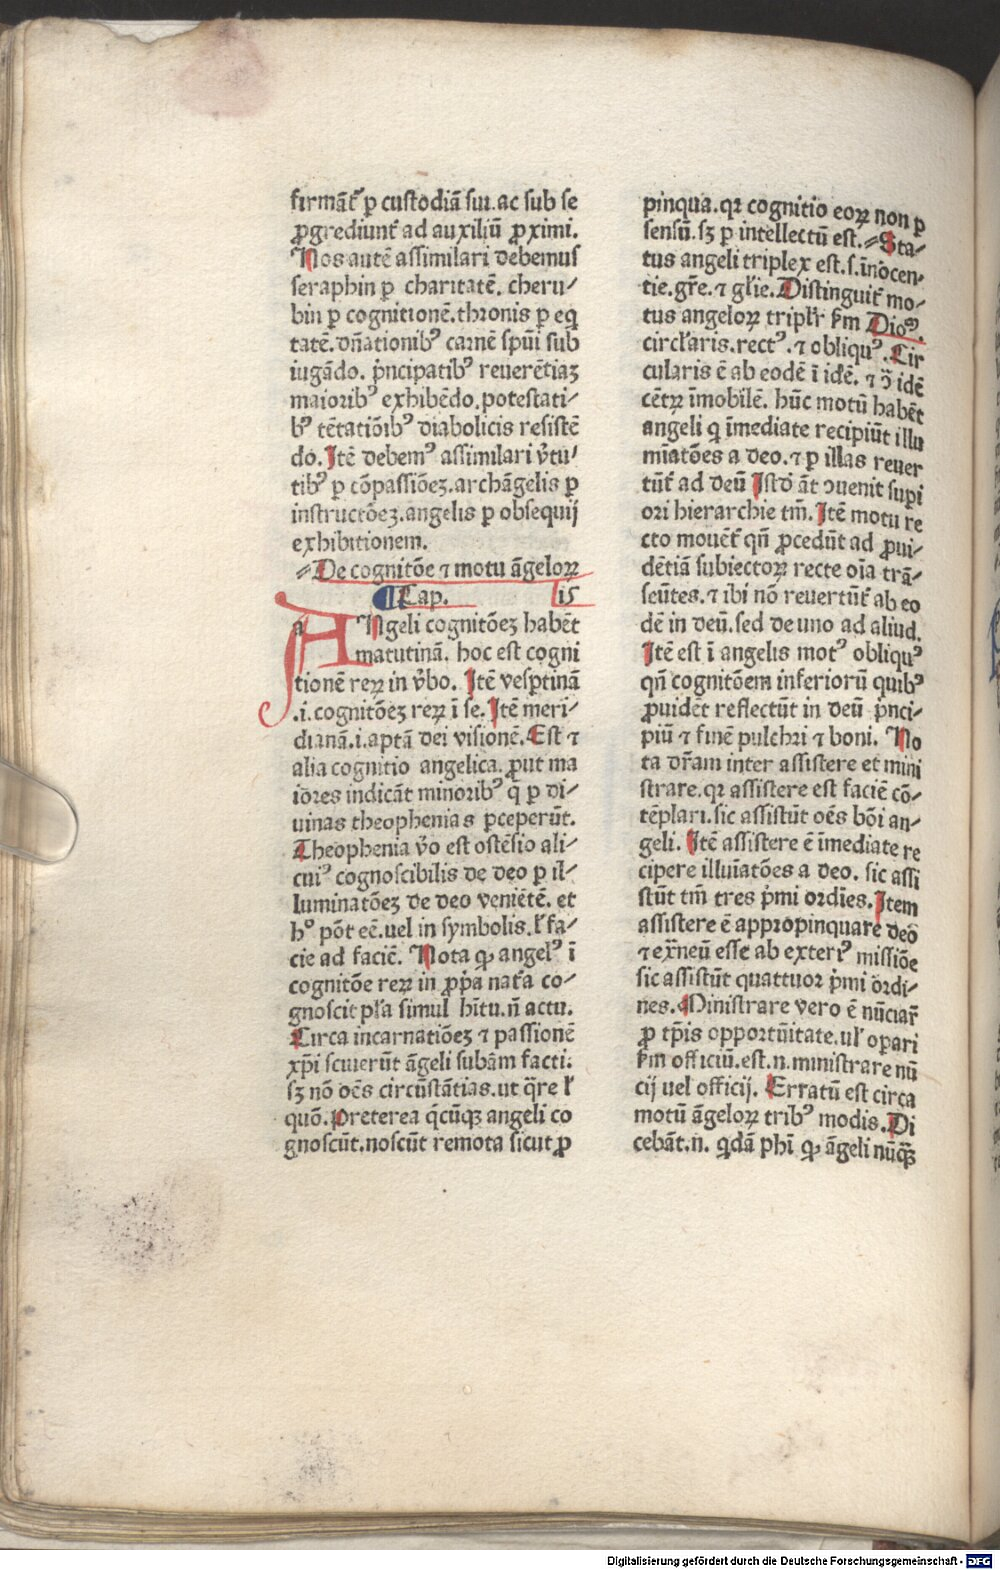 firmãt᷑ p̲ custodiã sui. ac sub se
ꝓgrediunt᷑ ad auxiliũ ꝓximi.
Nos autẽ assimilari debemus
seraphin ꝑ charitatẽ. cheru⸗
bin ꝑ cognitionẽ. thronis ꝑ eq̃
tatẽ. dñationibꝰ carnẽ spũi sub
iugãdo. p̃ncipatibꝰ reuerẽtiaꝫ
maioribꝰ exhibẽdo. potestati⸗
bꝰ tẽtatiõibꝰ diabolicis resistẽ
do. Itẽ debemꝰ assimilari v̾tu⸗
tibꝰ ꝑ cõpassiõeꝫ. archãgelis ꝑ
instructõeꝫ. angelis ꝑ obsequij
exhibitionem.
⸗De cognitõe ⁊ motu ãgeloꝝ
¶ Cap. 15
a ANgeli cognitõeꝫ habẽt
matutinã. hoc est cogni
tionẽ reꝝ in v̾bo. Itẽ vesꝑtinã
.i. cognitõeꝫ reꝝ ĩ se. Itẽ meri⸗
dianã. i. aptã dei visionẽ. Est ⁊
alia cognitio angelica. ꝓut ma
iores indicãt minoribꝰ q̃ ꝑ di⸗
uinas theophenias ꝑceperũt.
Theophenia v̾o est ostẽsio ali⸗
cuiꝰ cognoscibilis de deo ꝑ il⸗
luminatõeꝫ de deo veniẽtẽ. et
hᵒ põt eẽ. uel in symbolis. ł fa⸗
cie ad faciẽ. Nota ꝙ angelꝰ ĩ
cognitõe reꝝ in ꝓp̃a nat᷑a co⸗
gnoscit pła simul hĩtu. ñ actu.
Circa incarnatiõeꝫ ⁊ passionẽ
xp̃i sciuerũt ãgeli subãm facti.
sꝫ nõ oẽs circũstãtias. ut q̃re ł
quõ. Preterea q̃cũqꝫ angeli co
gnoscũt. noscũt remota sicut ꝓ
pinqua. qꝛ cognitio eoꝝ non ꝑ
sensũ. sꝫ ꝑ intellectũ est. ⸗Sta⸗
tus angeli triplex est. s. ĩnocen⸗
tie. gr̃e. ⁊ gl̃ie. Distinguit᷑ mo⸗
tus angeloꝝ tripl̃r ẜm Dioꝰ.
circl̃aris. rectꝰ. ⁊ obliquꝰ. Cir
cularis ẽ ab eodẽ ĩ idẽ. ⁊ ↄ̃ idẽ
cẽtꝝ ĩmobilẽ. hũc motũ habẽt
angeli q̃ ĩmediate recipiũt illu
mĩatões a deo. ⁊ ꝑ illas reuer
tũt᷑ ad deũ Istd̾ ãt ↄuenit suꝑi
ori hierarchie tm̃. Itẽ motu re
cto mouẽt᷑ qñ ꝓcedũt ad ꝓui⸗
dẽtiã subiectoꝝ recte oĩa trã⸗
seũtes. ⁊ ibi nõ reuertũt᷑ ab eo
dẽ in deũ. sed de uno ad aliud.
Itẽ est ĩ angelis motꝰ obliquꝰ
qñ cognitõem inferiorũ quibꝰ
ꝓuidẽt reflectũt in deũ p̃nci⸗
piũ ⁊ finẽ pulchri ⁊ boni. No
ta dr̃am inter assistere et mini
strare. qꝛ assistere est faciẽ cõ⸗
tẽplari. sic assistũt oẽs bõi an⸗
geli. Itẽ assistere ẽ ĩmediate re
cipere illuĩatões a deo. sic assi
stũt tm̃ tres p̃mi ordĩes. Item
assistere ẽ appropinquare deo
⁊ exr̃neũ esse ab exteriꝰ missiõe
sic assistũt quattuor p̃mi ordi⸗
nes. Ministrare vero ẽ nũciar̃
ꝓ tp̃is opportũitate. ul̾ oꝑari
ẜm officiũ. est. n. ministrare nũ
cij uel officij. Erratũ est circa
motũ ãgeloꝝ tribꝰ modis. Di
cebãt. n. qdã phi̇̃ ꝙ ãgeli nũqꝫ
Digitalisierung gefördert durch die Deutsche Forschungsgemeinschaft - DFG